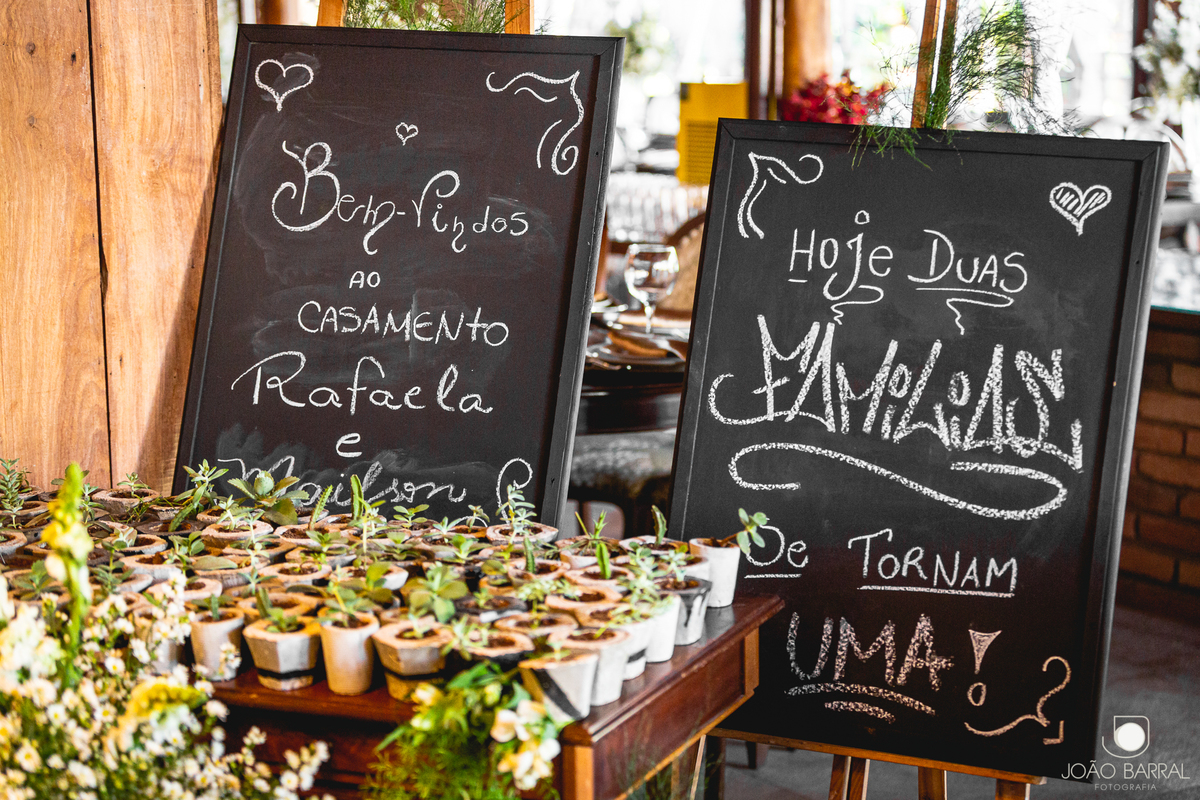 Bem-Vindos
AO
CASAMENTO
Rafaela
e
Mailson
Hoje DUAS
FAMíLiAS
De TORNAM
UMA!
JOÃO BARRAL
FOTOGRAFIA